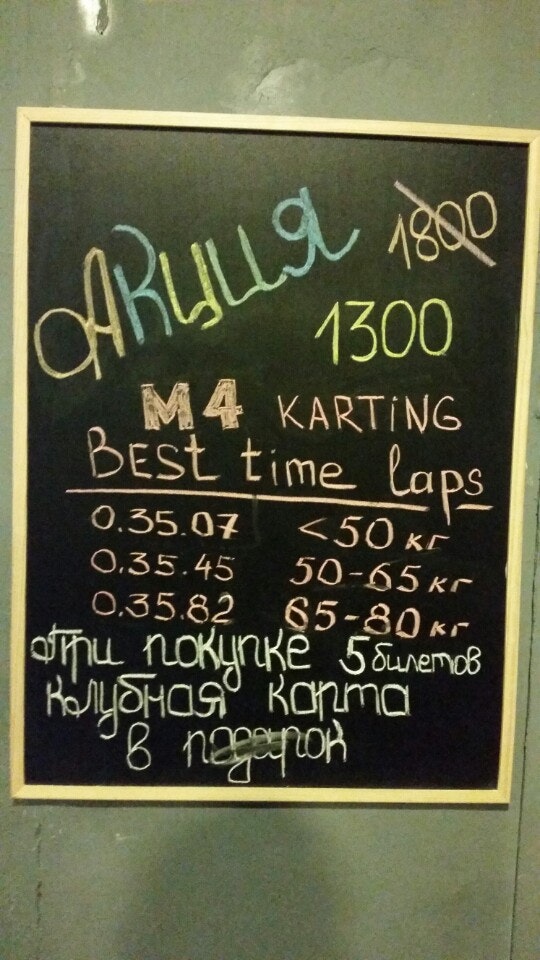 Акция 1800
1300
M4 KARTING
Best time laps
0.35.07 <50 кг
0.35.45 50-65 кг
0.35.82 65-80 кг
При покупке 5 билетов
клубная карта
в подарок